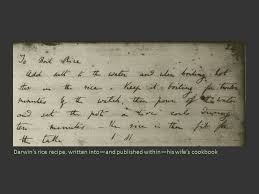 To Boil Rice
Add salt to the water and when boiling hot
stir in the rice. Keep it boiling for twelve
minutes by the watch, then pour off the water
and set the pot on live coals during
ten minutes - the rice is then fit for
the table.
Darwin's rice recipe, written into—and published within—his wife's cookbook